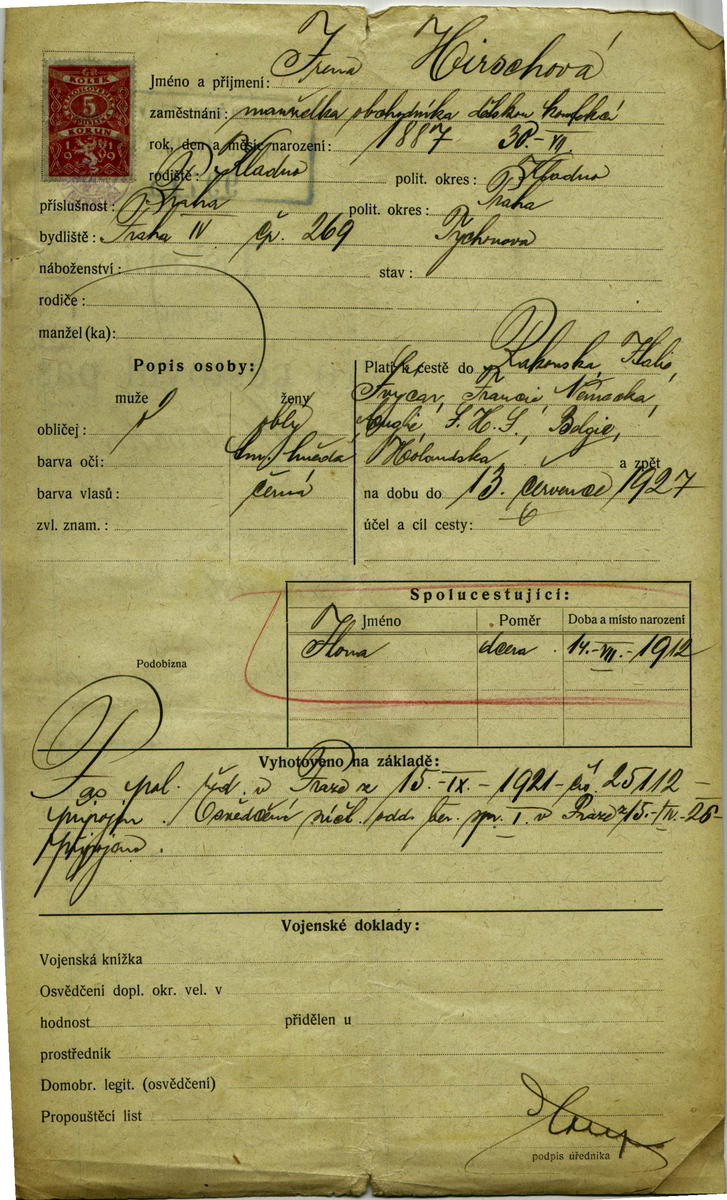 Jméno a příjmení: Irena Hirschová
KOLEK
5
KORUN
1919
zaměstnání: manželka obchodníka dětskou konfekcí
rok, den a měsíc narození: 1887 30-VII.
rodiště: Kladno polit. okres: Kladno
příslušnost: Praha polit. okres: Praha
bydliště: Praha IV čp. 269 Tychonova
náboženství: stav:
rodiče:
manžel (ka):
Popis osoby:
muže ženy
obličej: oblý
barva očí: tm. hnědá
barva vlasů: černá
zvl. znam.:
Platí k cestě do Rakouska, Italie,
Švýcar, Francie, Německa,
Anglie, S.H.S, Belgie,
Holandska a zpět
na dobu do 13. července 1927
účel a cíl cesty:
Podobizna
Spolucestující:
Jméno Poměr Doba a místo narození
Ilona dcera 14.-VII.-1912
Vyhotoveno na základě:
Pas pol. řed. v Praze z 15.-IX.-1921- čís. 25112-
připojen. Osvědčení účt. odd. ber. spr. I. v Praze z 15.-IV.-26-
připojeno.
Vojenské doklady:
Vojenská knížka
Osvědčení dopl. okr. vel. v
hodnost přidělen u
prostředník
Domobr. legit. (osvědčení)
Propouštěcí list
podpis úředníka